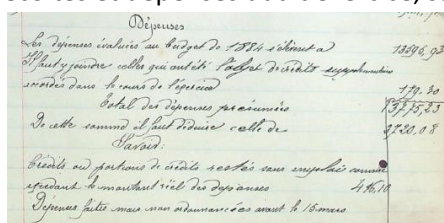 Dépenses
Les dépenses évaluées au budget de 1884 s'élèvent à 13596,93
Il faut y joindre celles qui ont été l'objet de crédits supplémentaires
accordés dans le cours de l'exercice 179,30
Total des dépenses présumées 13775,23
De cette somme il faut déduire celle de 3720,08
Savoir:
Crédits ou portions de crédits restés sans emploi comme
excédant le montant réel des dépenses 416,10
Dépenses faites mais non ordonnancées avant le 15 mars